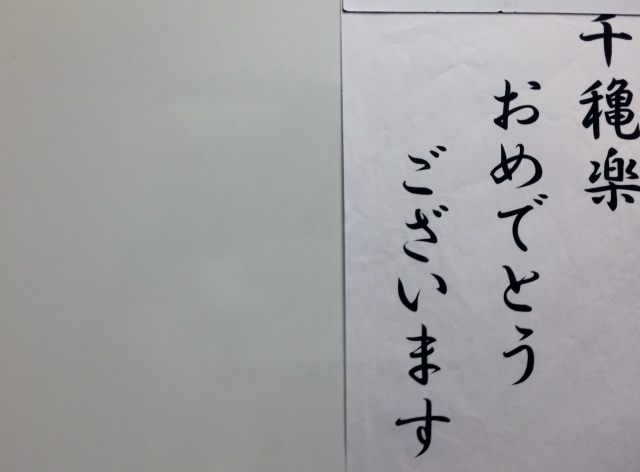 千穐楽
おめでとう
ございます